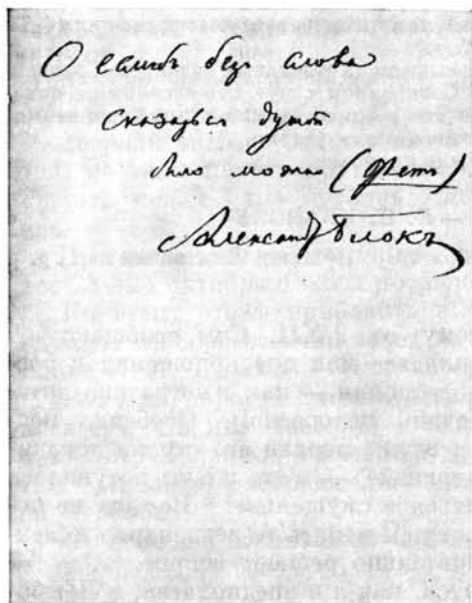 О еслибъ безъ слова
сказаться душой
было можно (Фетъ)
Александръ Блокъ